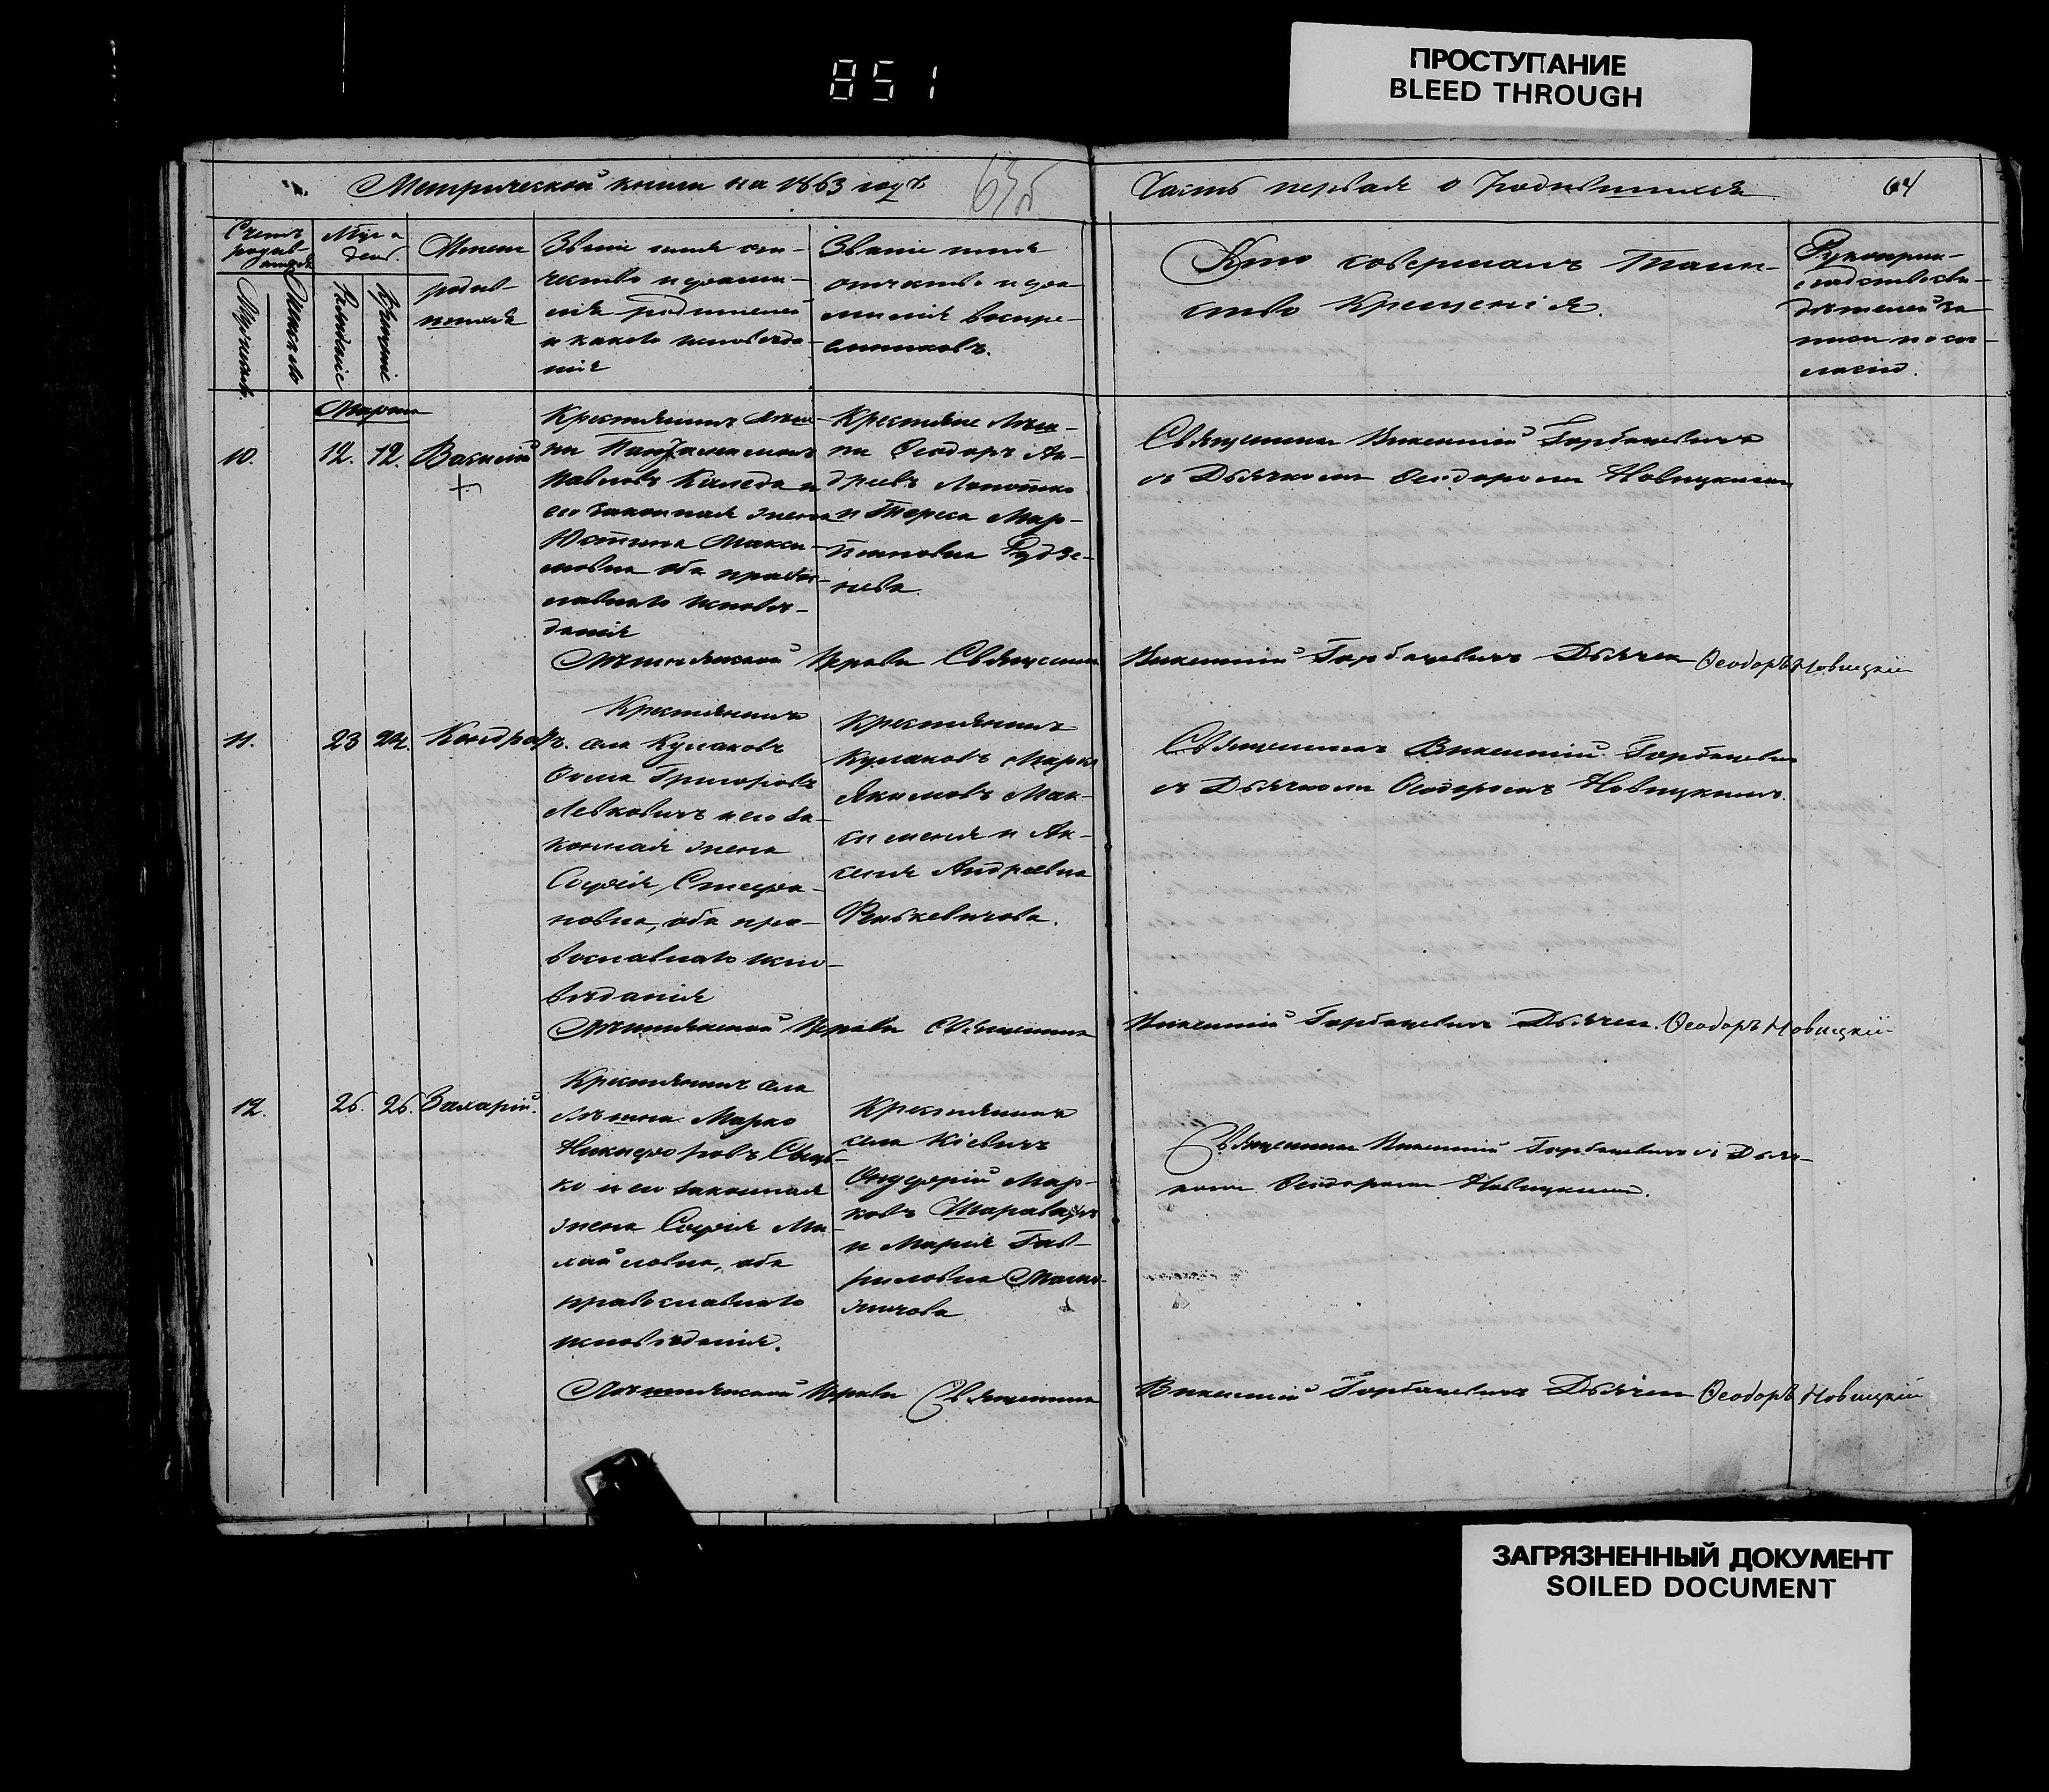 851
ПРОСТУПАНИЕ
BLEED THROUGH
Метрической книги на 1863 годъ
63об
Часть первая о родившихся
64
Счетъ родив-шихся
Мужеска
Женска
Мѣс. и день.
Рожденіе
Крещеніе
Имена
родив-
шихся
Званіе имя оте-
чество и фами-
лія родителей
и какого исповѣда-
нія
Званіе имя
отчество и фа
милія воспре-
емниковъ.
Кто совершалъ таин-
ство Крещенія.
Рукоприк-
ладство сви-
дѣтелей за
писи по же-
ланію.
Марта
10.
12. 12.
Василій
Крестьянинъ
Павловъ Каледа и
его законная жена
Юстина Макси-
мовна оба право-
славнаго исповѣ-
данія
Крестьяне
Ѳеодоръ Ан-
дреевъ Лопотко
и Тереса Мар-
тиновна
Священникъ Викентій Горбацевичъ
съ Дьячкомъ Ѳеодоромъ Новицкимъ
Церкви Священникъ
Викентій Горбацевичъ Дьячекъ Ѳеодоръ Новицкій
11.
23 24.
Кондратъ.
Крестьянинъ
села Кулаковъ
Ѳома Григоровъ
Левковичъ и его за-
конная жена
Софія Стефа-
новна, оба пра-
вославнаго испо-
вѣданія
Крестьянинъ
Кулаковъ Марко
Якимовъ Мак-
сименя и Ак-
сенія Андреевна
Фенькевичова.
Священникъ Викентій Горбацевичъ
съ Дьячкомъ Ѳеодоромъ Новицкимъ.
Церкви Священникъ
Викентій Горбацевичъ Дьячекъ Ѳеодоръ Новицкій
12.
26. 26.
Захарій.
Крестьянинъ села
Марко
Никифоровъ
и его законная
жена Софія Ми-
хайловна, оба
православнаго
исповѣданія.
Крестьянинъ
села Кіевичъ
Онуфрій Мар-
ковъ
и Марія Гав-
риловна
Священникъ Викентій Горбацевичъ съ Дьяч-
комъ Ѳеодоромъ Новицкимъ.
Церкви Священникъ
Викентій Горбацевичъ Дьячекъ Ѳеодоръ Новицкій
ЗАГРЯЗНЕННЫЙ ДОКУМЕНТ
SOILED DOCUMENT